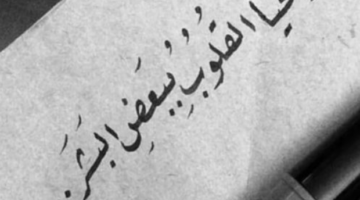 تحيا القلوبُ ببعَضِ البَشَر